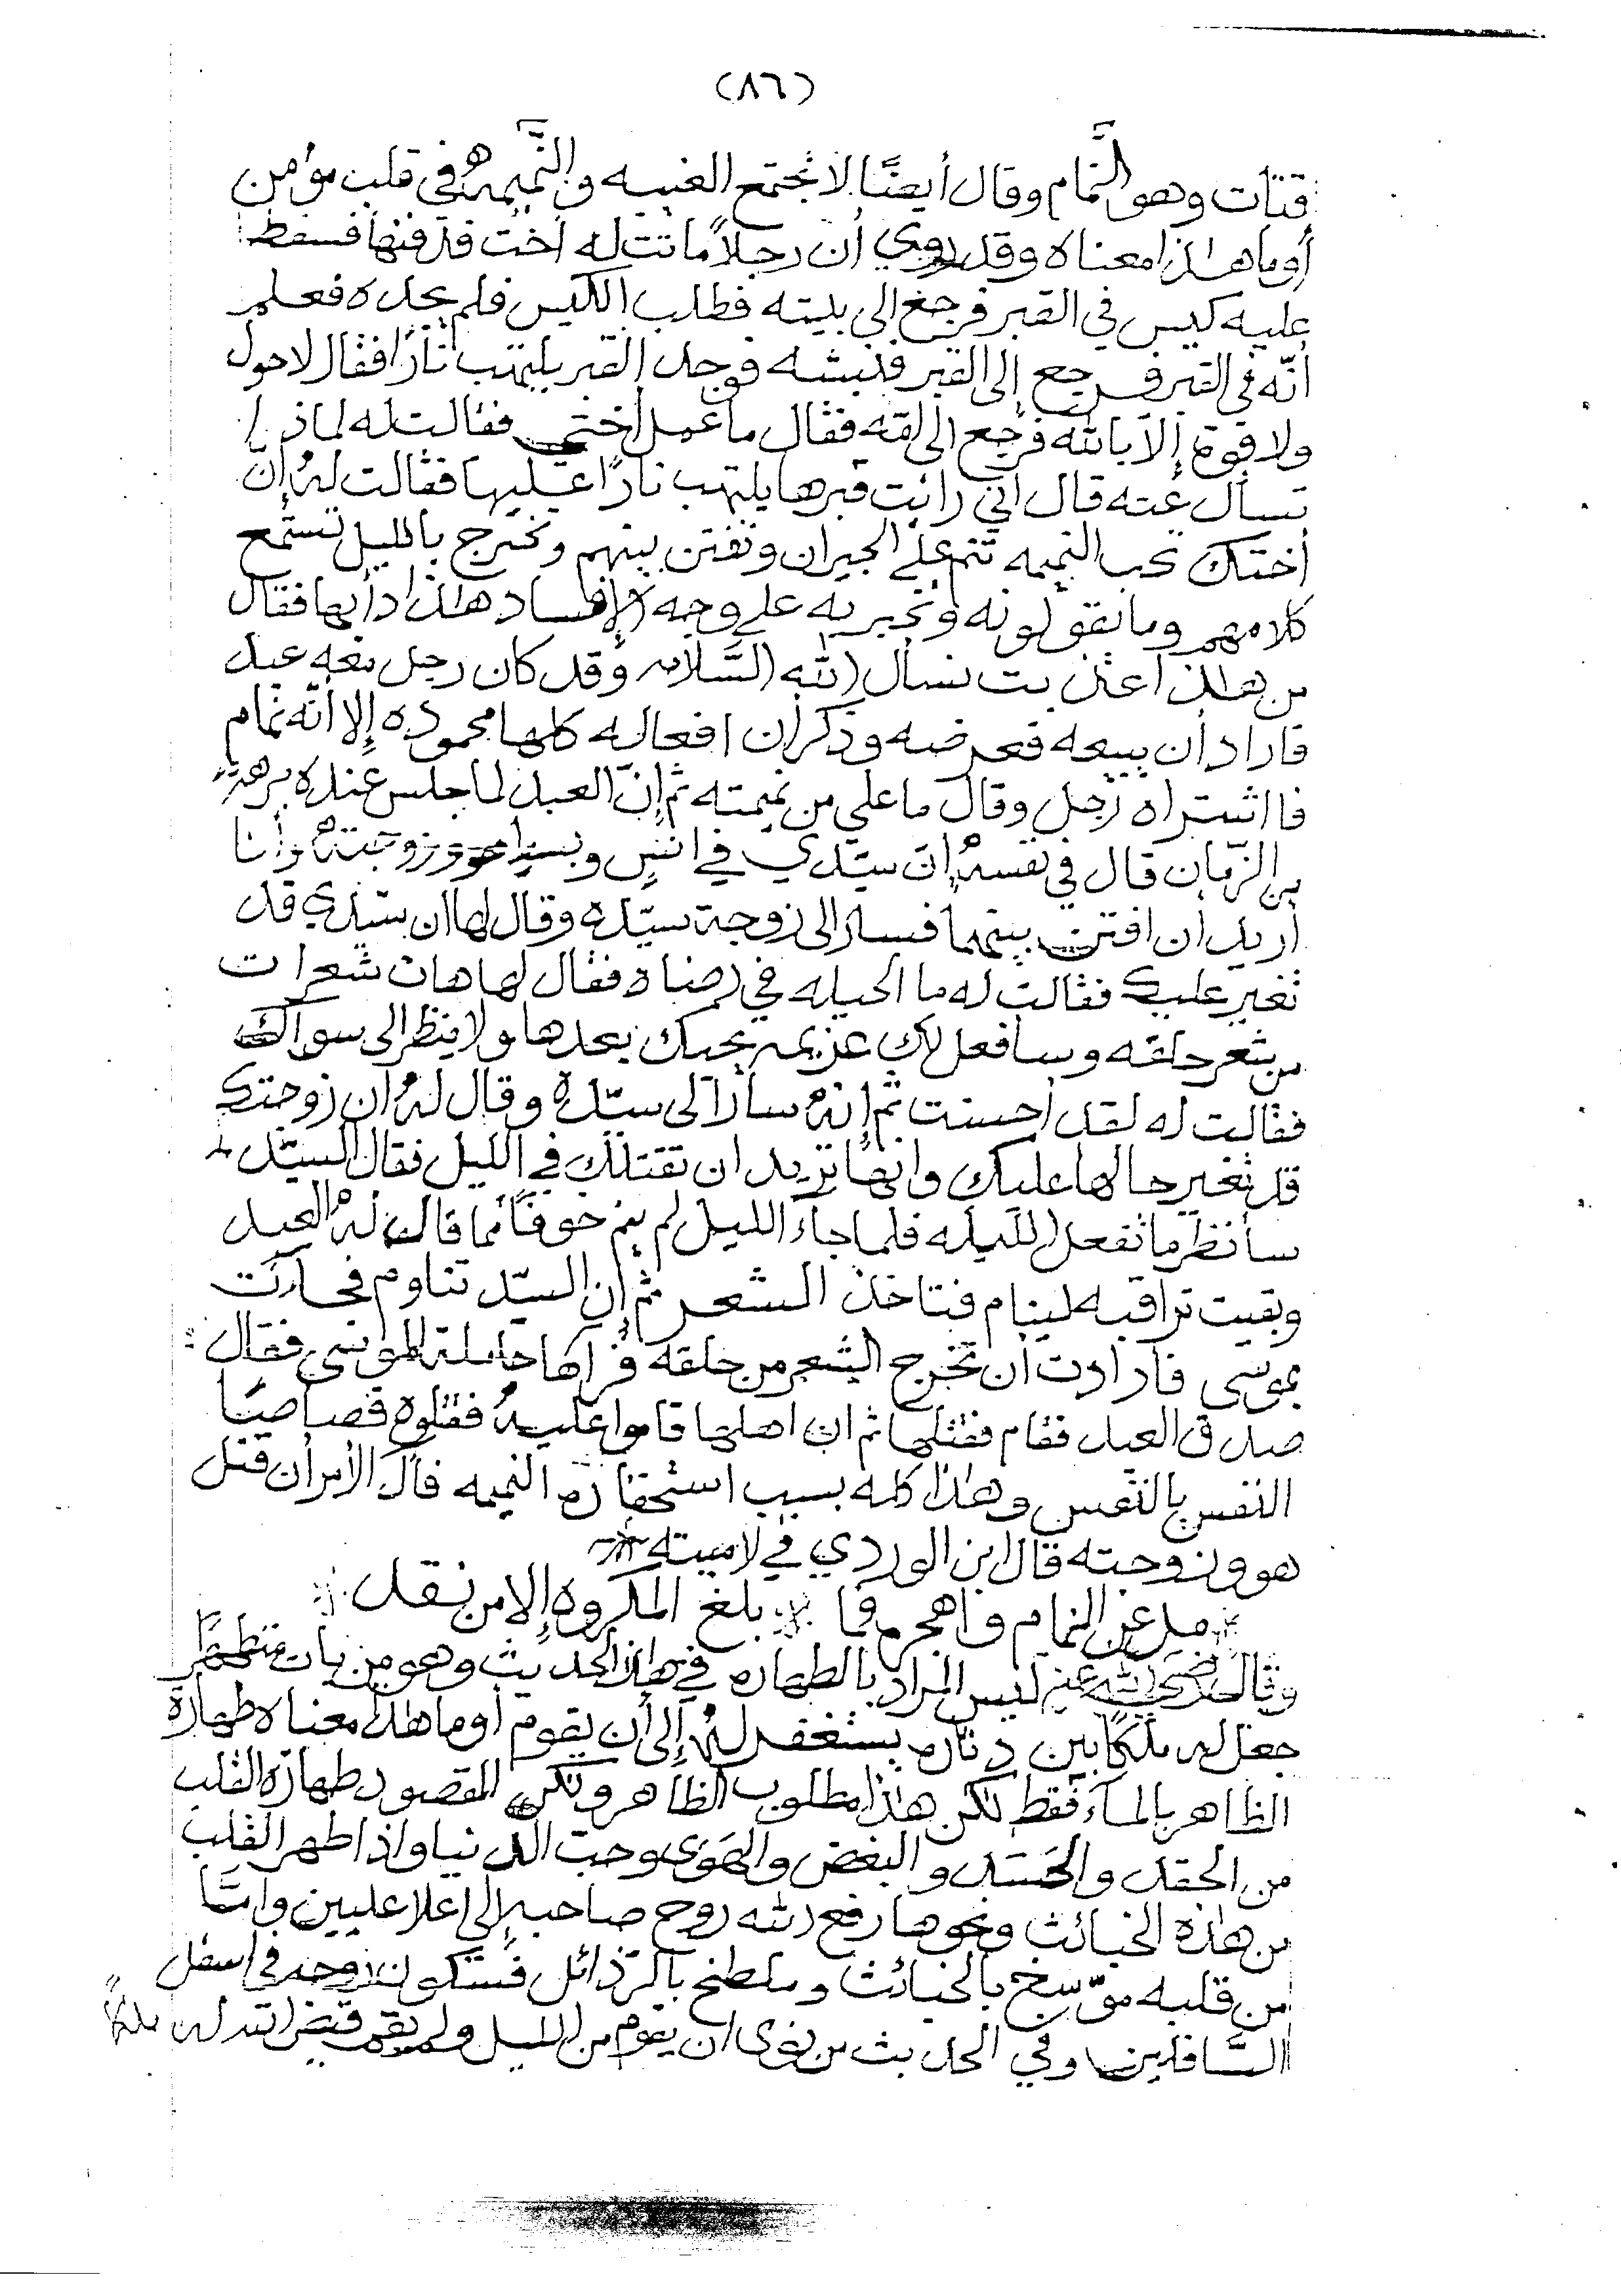 (٨٦)
قتات وهو النَّمام وقال أيضًا لا تجتمع الغيبه والنَّميمهُ في قلب مؤمن
أوما هٰذا معناه وقد روي أن رجلاً ماتت له أخت فدفنها فسقط
عليه كيس في القبر فرجع إلى بيته فطلب الكيس فلم يجده فعلم
أنّه في القبر فرجع إلى القبر فنبشه فوجد القبر يلتهب نارًا فقال لا حول
ولا قوة إلا بالله فرجع الى امّه فقال ما عمل أختي فقالت له لماذا
تسأل عنه قال اني رائيت قبرها يلتهب نارًا عليها فقالت لهُ إنّ
أختك تحب النميمه تنم على الجيران وتفتن بينهم وتخرج بالليل تستمع
كلامهم وما يقولونه وتخبر به على وجه الإفساد هٰذا دأبها فقال
من هٰذا عذبت نسأل الله السَّلامه وقد كان رجل معه عبد
فاراد أن يبيعه فعرضه وذكر ان افعاله كلها محموده إلا أنّه نمام
فا اشتراه رجل وقال ما علي من نميمته ثم إنّ العبد لما جلس عنده برهة
من الزّمان قال في نفسهُ ان سيّدي في انس وبسط هو وزوجتهُ وأنا
أريد أن افتن بينهما فسار الى زوجة سيّده وقال لها ان سيّدي قد
تغير عليك فقالت له ما الحيله في رضاه فقال لها هات شعرات
من شعر حلقه وسافعل لك عزيمه يحبك بعدها ولا ينظر الى سواك
فقالت له لقد احسنت ثم إنهُ سار الى سيّده وقال لهُ ان زوجتك
قد تغير حالها عليك وانها تريد ان تقتلك في الليل فقال السيّد
سأنظر ما تفعل الليله فلما جاء الليل لم ينم خوفًا مما قال لهُ العبد
وبقيت تراقبه لينام فتاخذ الشعر ثم إن السيّد تناوم فجاءت
بموسى فارادت أن تخرج الشعر من حلقه فرآها حاملة الموسى فقال
صدق العبد فقام فقتلها ثم ان اهلها قاموا عليهُ فقتلوه قصاصًا
النفس بالنفس وهٰذا كله بسبب استحقاره النميمه فآل الأمر أن قتل
هو وزوجته قال ابن الوردي في لاميته
مل عن النمام واهجره فما بلغ المكروه إلا من نقل
وقال رضي الله عنه ليس المراد بالطهاره في هٰذا الحديث وهو من بات متطهرًا
جعل له ملكًا بين دثاره يستغفر لهُ إلى أن يقوم أوما هٰذا معناه طهارة
الظاهر بالماء فقط لكن هٰذا مطلوب الظاهر ولكن المقصود طهارة القلب
من الحقد والحَسَد والبغض والهَوى وحب الدنيا واذا طهر القلب
من هٰذه الخبائث ونحوها رفع الله روح صاحبه إلى اعلا عليين وامّا
من قلبه موّسخ بالخبائث وملطخ بالرّذائل فستكون روحه في اسفل
السَّافلين وفي الحديث من نوى ان يقوم من الليل ولم يقم قيض الله له ملكًا